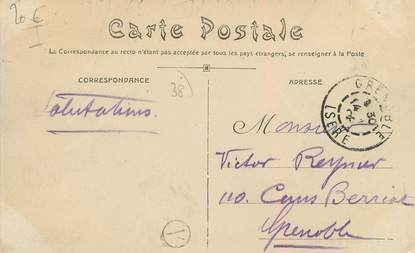 20 €
I
Carte Postale
La Correspondance au recto n'étant pas acceptée par tous les pays étrangers, se renseigner à la Poste
CORRESPONDANCE
38
ADRESSE
GRENOBLE
ISERE
Salutations.
Monsieur
Victor Reynier
110. Cours Berriat
Grenoble